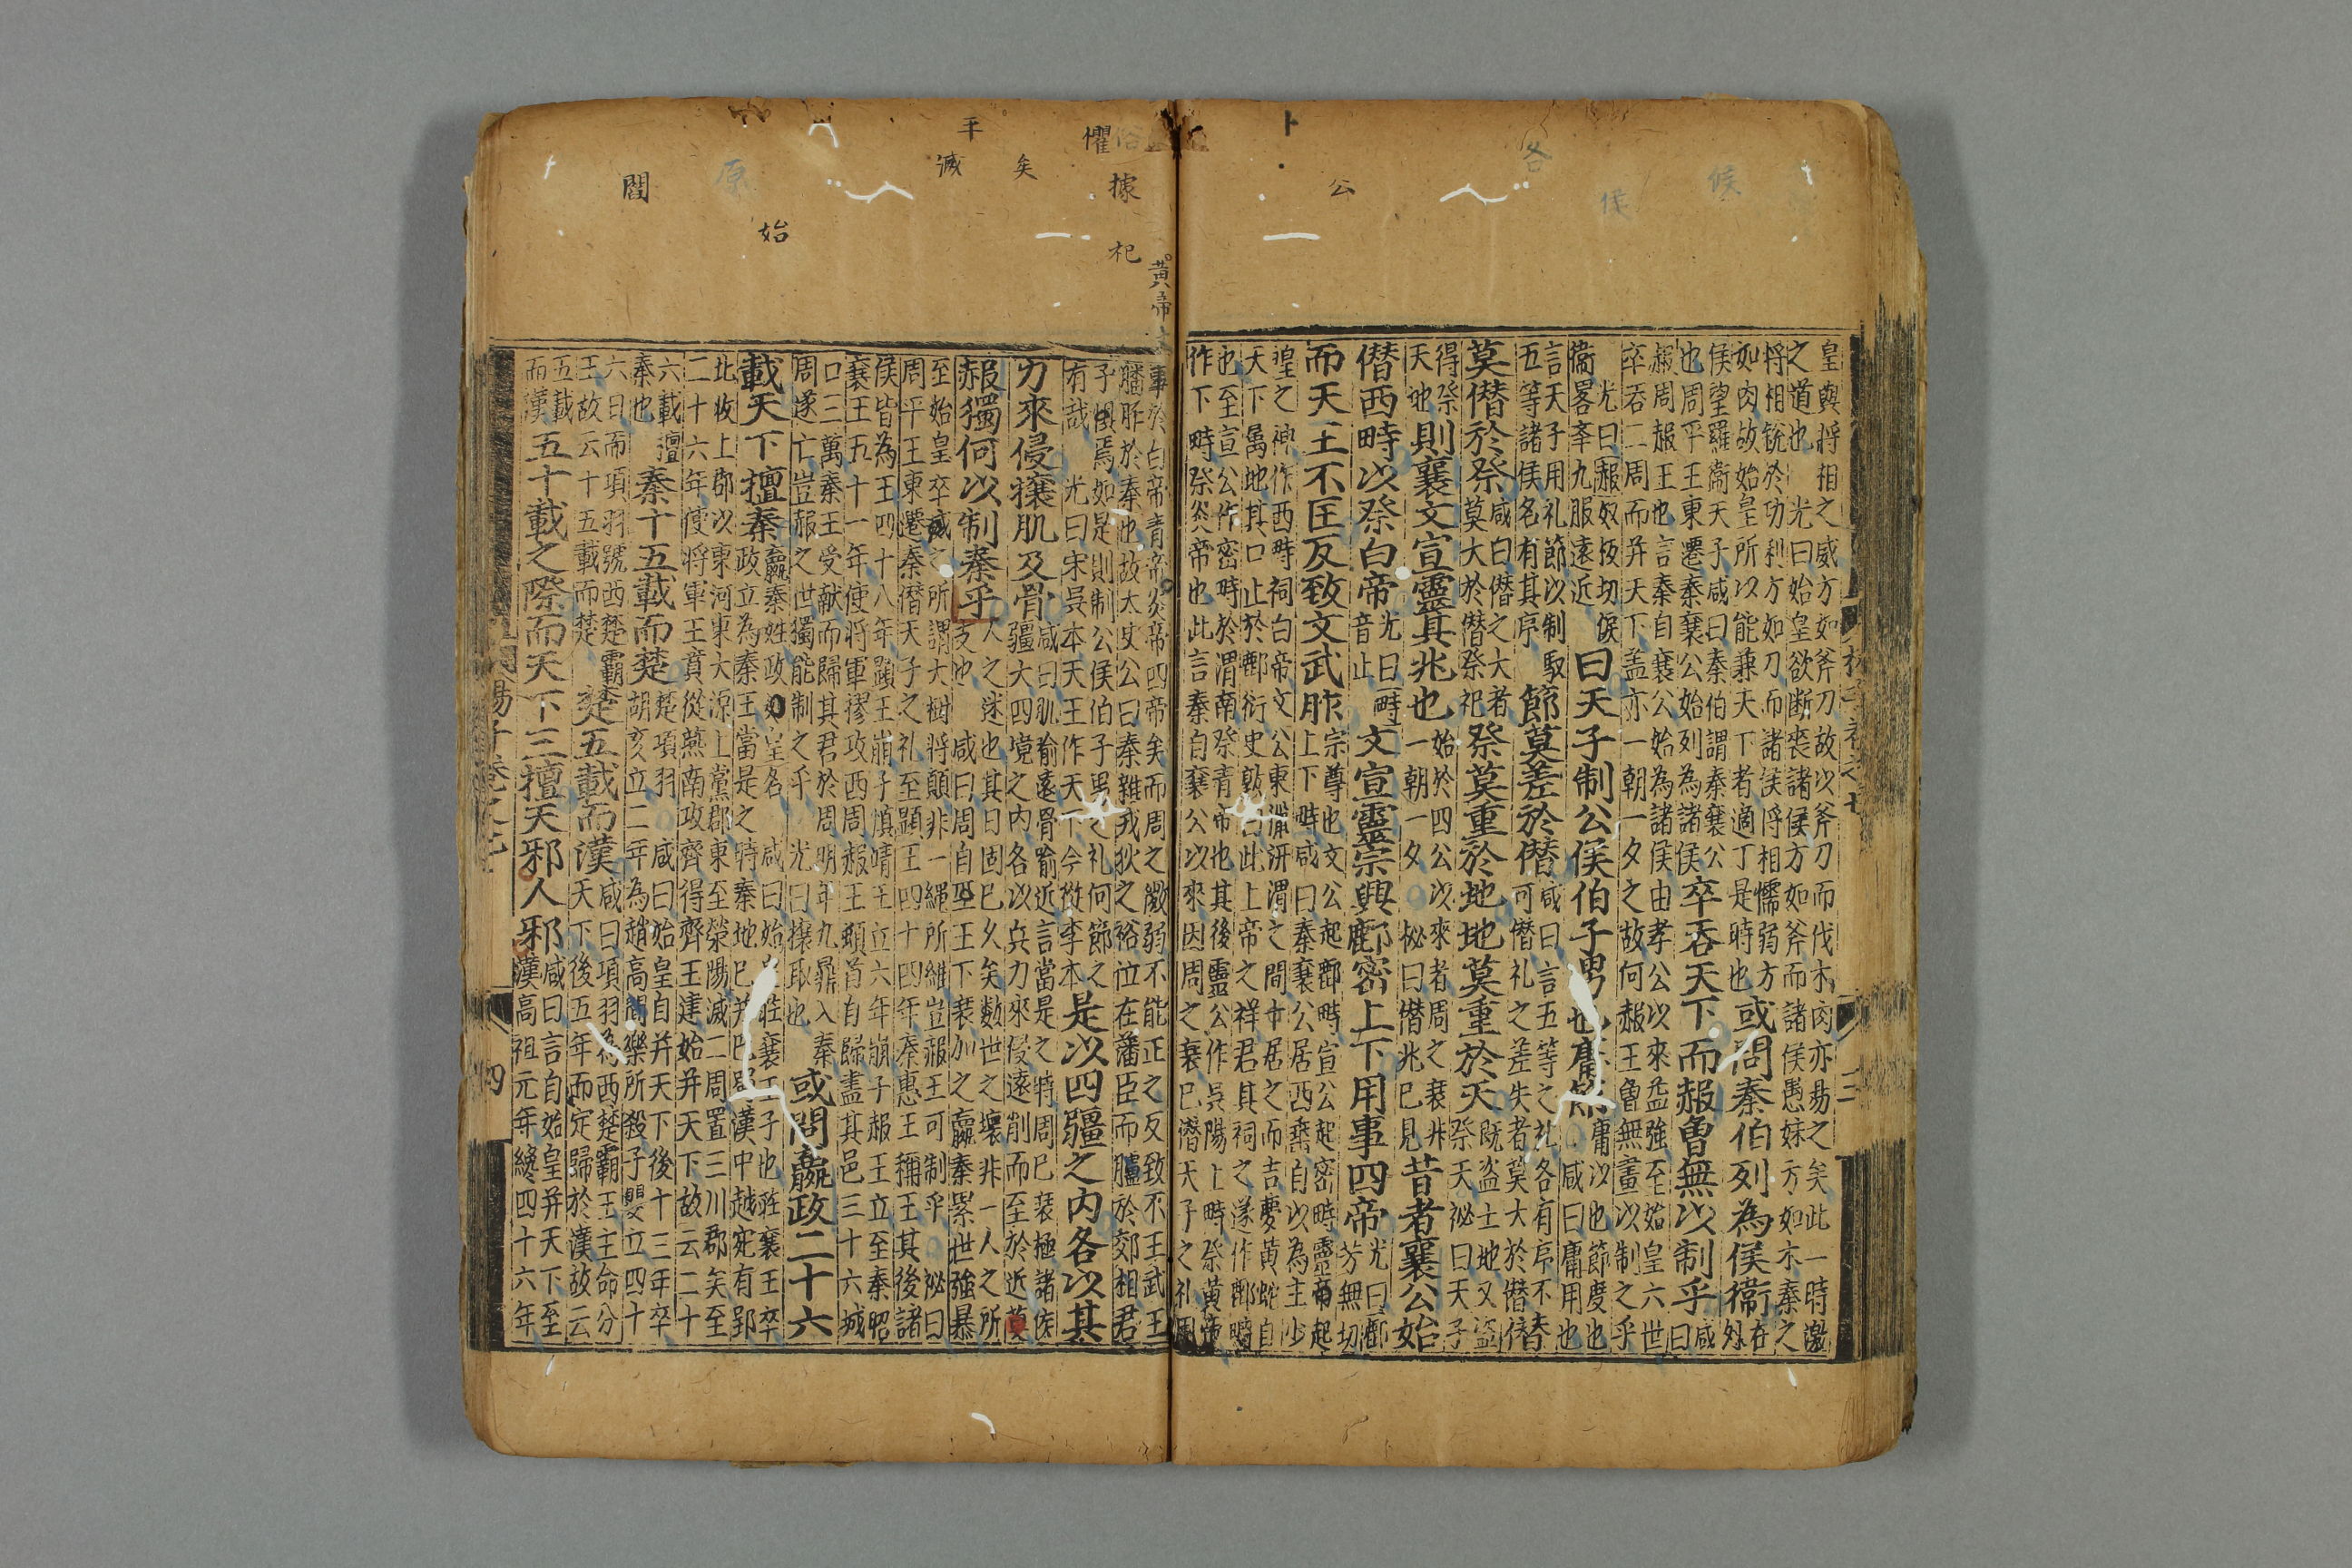 皇與將相之威方如斧刀故以斧刀而伐木肉亦易之矣此一時激
之道也 光曰始皇欲断喪諸侯方如斧而諸侯愚妹方如木秦之
將相銳於功利方如刀而諸侯将相懦弱方
如肉故始皇所以能兼天下者適丁是時也
或問秦伯列為侯衞
在
外
侯望羅衞天子咸曰秦伯謂秦襄公
也周平王東遷秦襄公始列為諸侯
卒吞天下而赧曾無以制乎
咸
曰
赧周赧王也言秦自襄公始為諸侯由孝公以來益強至始皇六世
卒吞二周而并天下盖亦一朝一夕之故何赧王曾無畫以制之乎
光曰赧奴板切俟
衞畧卒九服遠近
曰天子制公侯伯子男也庸節
庸以也節度也
咸曰庸用也
言天子用礼節以制馭
五等諸侯名有其序
節莫差於僭
咸曰言五等之礼各有序不替
可僭礼之差失者莫大於僭
莫僭於祭
咸曰僭之大者
莫大於僭祭祀
祭莫重於地地莫重於天
既盗土地又盗
祭天祕曰天子
得祭
天地
則襄文宣靈其兆也
始於四公以來者周之衰非
一朝一夕 祕曰僭兆已見
昔者襄公始
僭西畤以祭白帝
光曰畤
音止
文宣靈宗興鄜密上下用事四帝
光曰鄜
芳無切
而天王不匡反致文武胙
宗尊也文公起鄜畤宣公起密畤靈公起
上下畤咸曰秦襄公居西乘自以為主少
皇之神作西畤祠白帝文公東獵汧渭之間卜居之而吉夢黃蛇自
天下属地其口止於鄜衍史敦曰此上帝之祥君其祠之遂作鄜畤
也至宣公作密畤於渭南祭青帝也其後靈公作吳陽上畤祭黃帝
作下畤祭炎帝也此言秦自襄公以來因周之衰已潛天子之礼周
事於白帝青帝炎帝四帝矣而周之微弱不能正之反致不王武王
膰胙於秦也故太史公曰秦雜戎狄之裕位在藩臣而臚於郊相君
子惧焉如是則制公侯伯子男之礼何節之
有哉 光曰宋吳本天王作天下今從李本
是以四疆之内各以其
力來侵攘肌及骨
咸曰肌喻遠骨喻近言當是之時周已衰極諸侯
疆大四境之内各以兵力來侵遠削而至於近莫
赧獨何以制秦乎
人之迷也其日固已久矣数世之壞非一人之所
支也 咸曰周自平王下衰加之嬴秦累世強暴
至始皇卒威之所謂大樹將顛非一繩所維豈赧王可制乎 祕曰
周平王東遷秦僭天子之礼至顕王四十四年秦惠王稱王其後諸
侯皆為王四十八年顕王崩子慎靖王立六年崩子赧王立至秦昭
襄王五十一年使将軍摎攻西周赧王頓首自歸盡其邑三十六城
口三萬秦王受献而歸其君於周明年九鼎入秦
周遂亡豈赧之世獨能制之乎 光曰攘取也
或問嬴政二十六
載天下擅秦
嬴秦姓政始皇名 咸曰始皇莊襄王子也莊襄王卒
政立為秦王當是之時秦地已并巴蜀漢中越宛有郢
北收上郡以東河東大原上黨郡東至滎陽滅二周置三川郡矣至
二十六年使將軍王賁從燕南攻齊得齊王建始并天下故云二十
六載擅
秦也
秦十五載而楚
楚項羽 咸曰始皇自并天下後十三年卒
胡亥立二年為趙高閻樂所殺子嬰立四十
六日而項羽號西楚霸
王故云十五載而楚
楚五載而漢
咸曰項羽為西楚霸王主命分
天下後五年而定歸於漢故云
五載
而漢
五十載之際而天下三擅天邪人邪
咸曰言自始皇并天下至
漢高祖元年緫四十六年
四
懼
據
祀
黃帝
平
滅
矣
始
閻
公